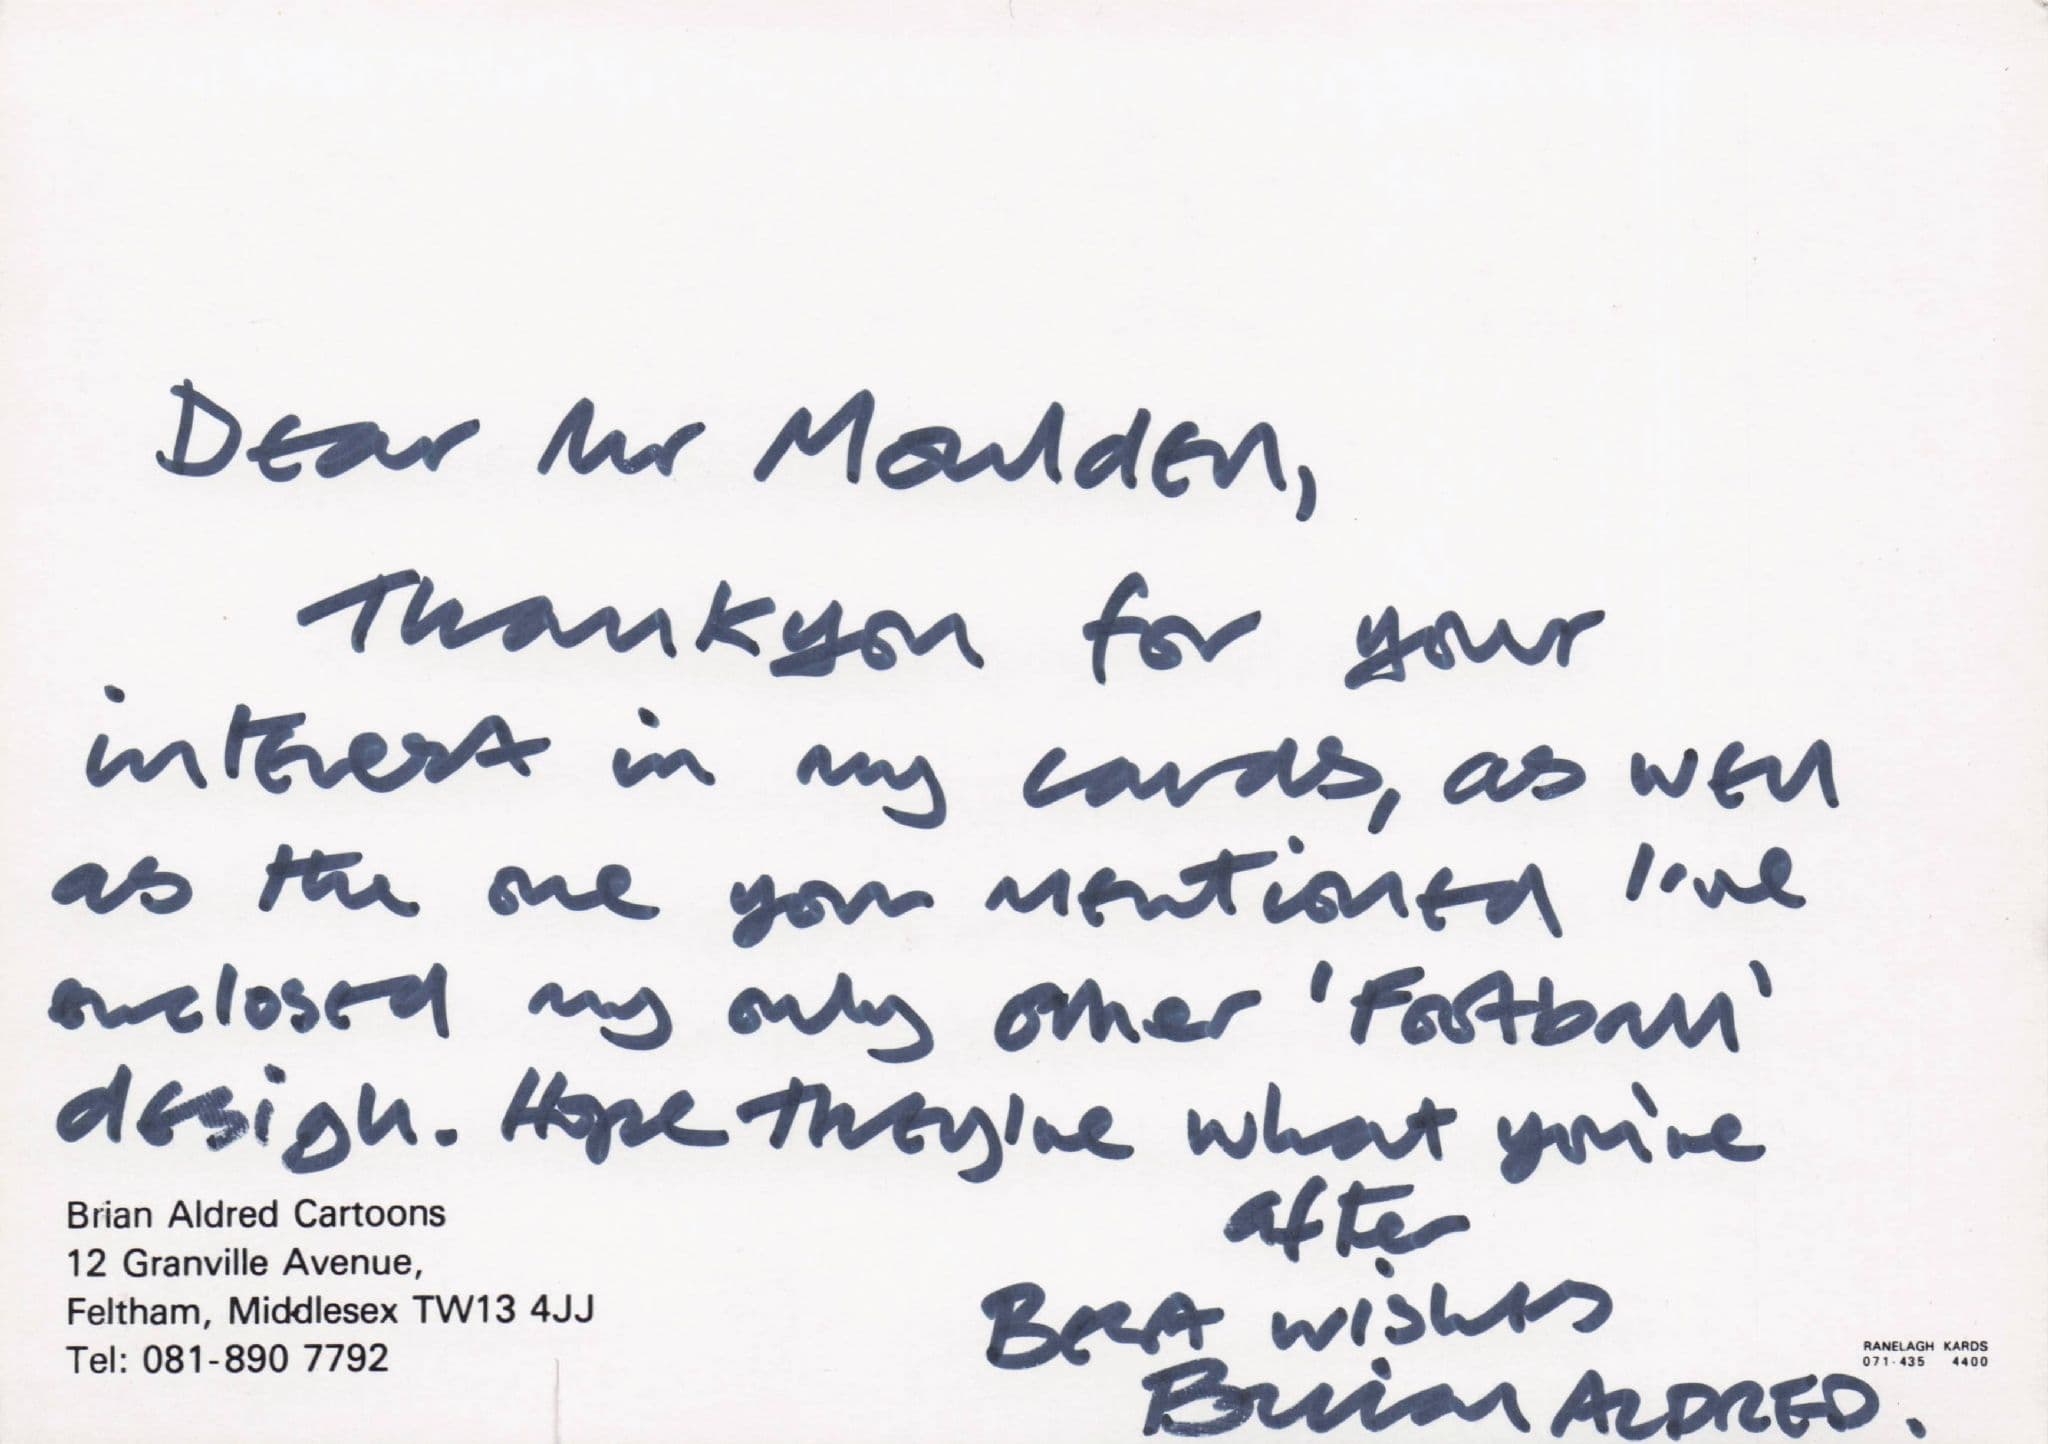 Dear Mr Moulden,
Thankyou for your
interest in my cards, as well
as the one you mentioned I've
enclosed my only other 'Football'
design. Hope they're what you're
after
Best wishes
Brian ALDRED.
Brian Aldred Cartoons
12 Granville Avenue,
Feltham, Middlesex TW13 4JJ
Tel: 081-890 7792
RANELAGH KARDS
071-435 4400